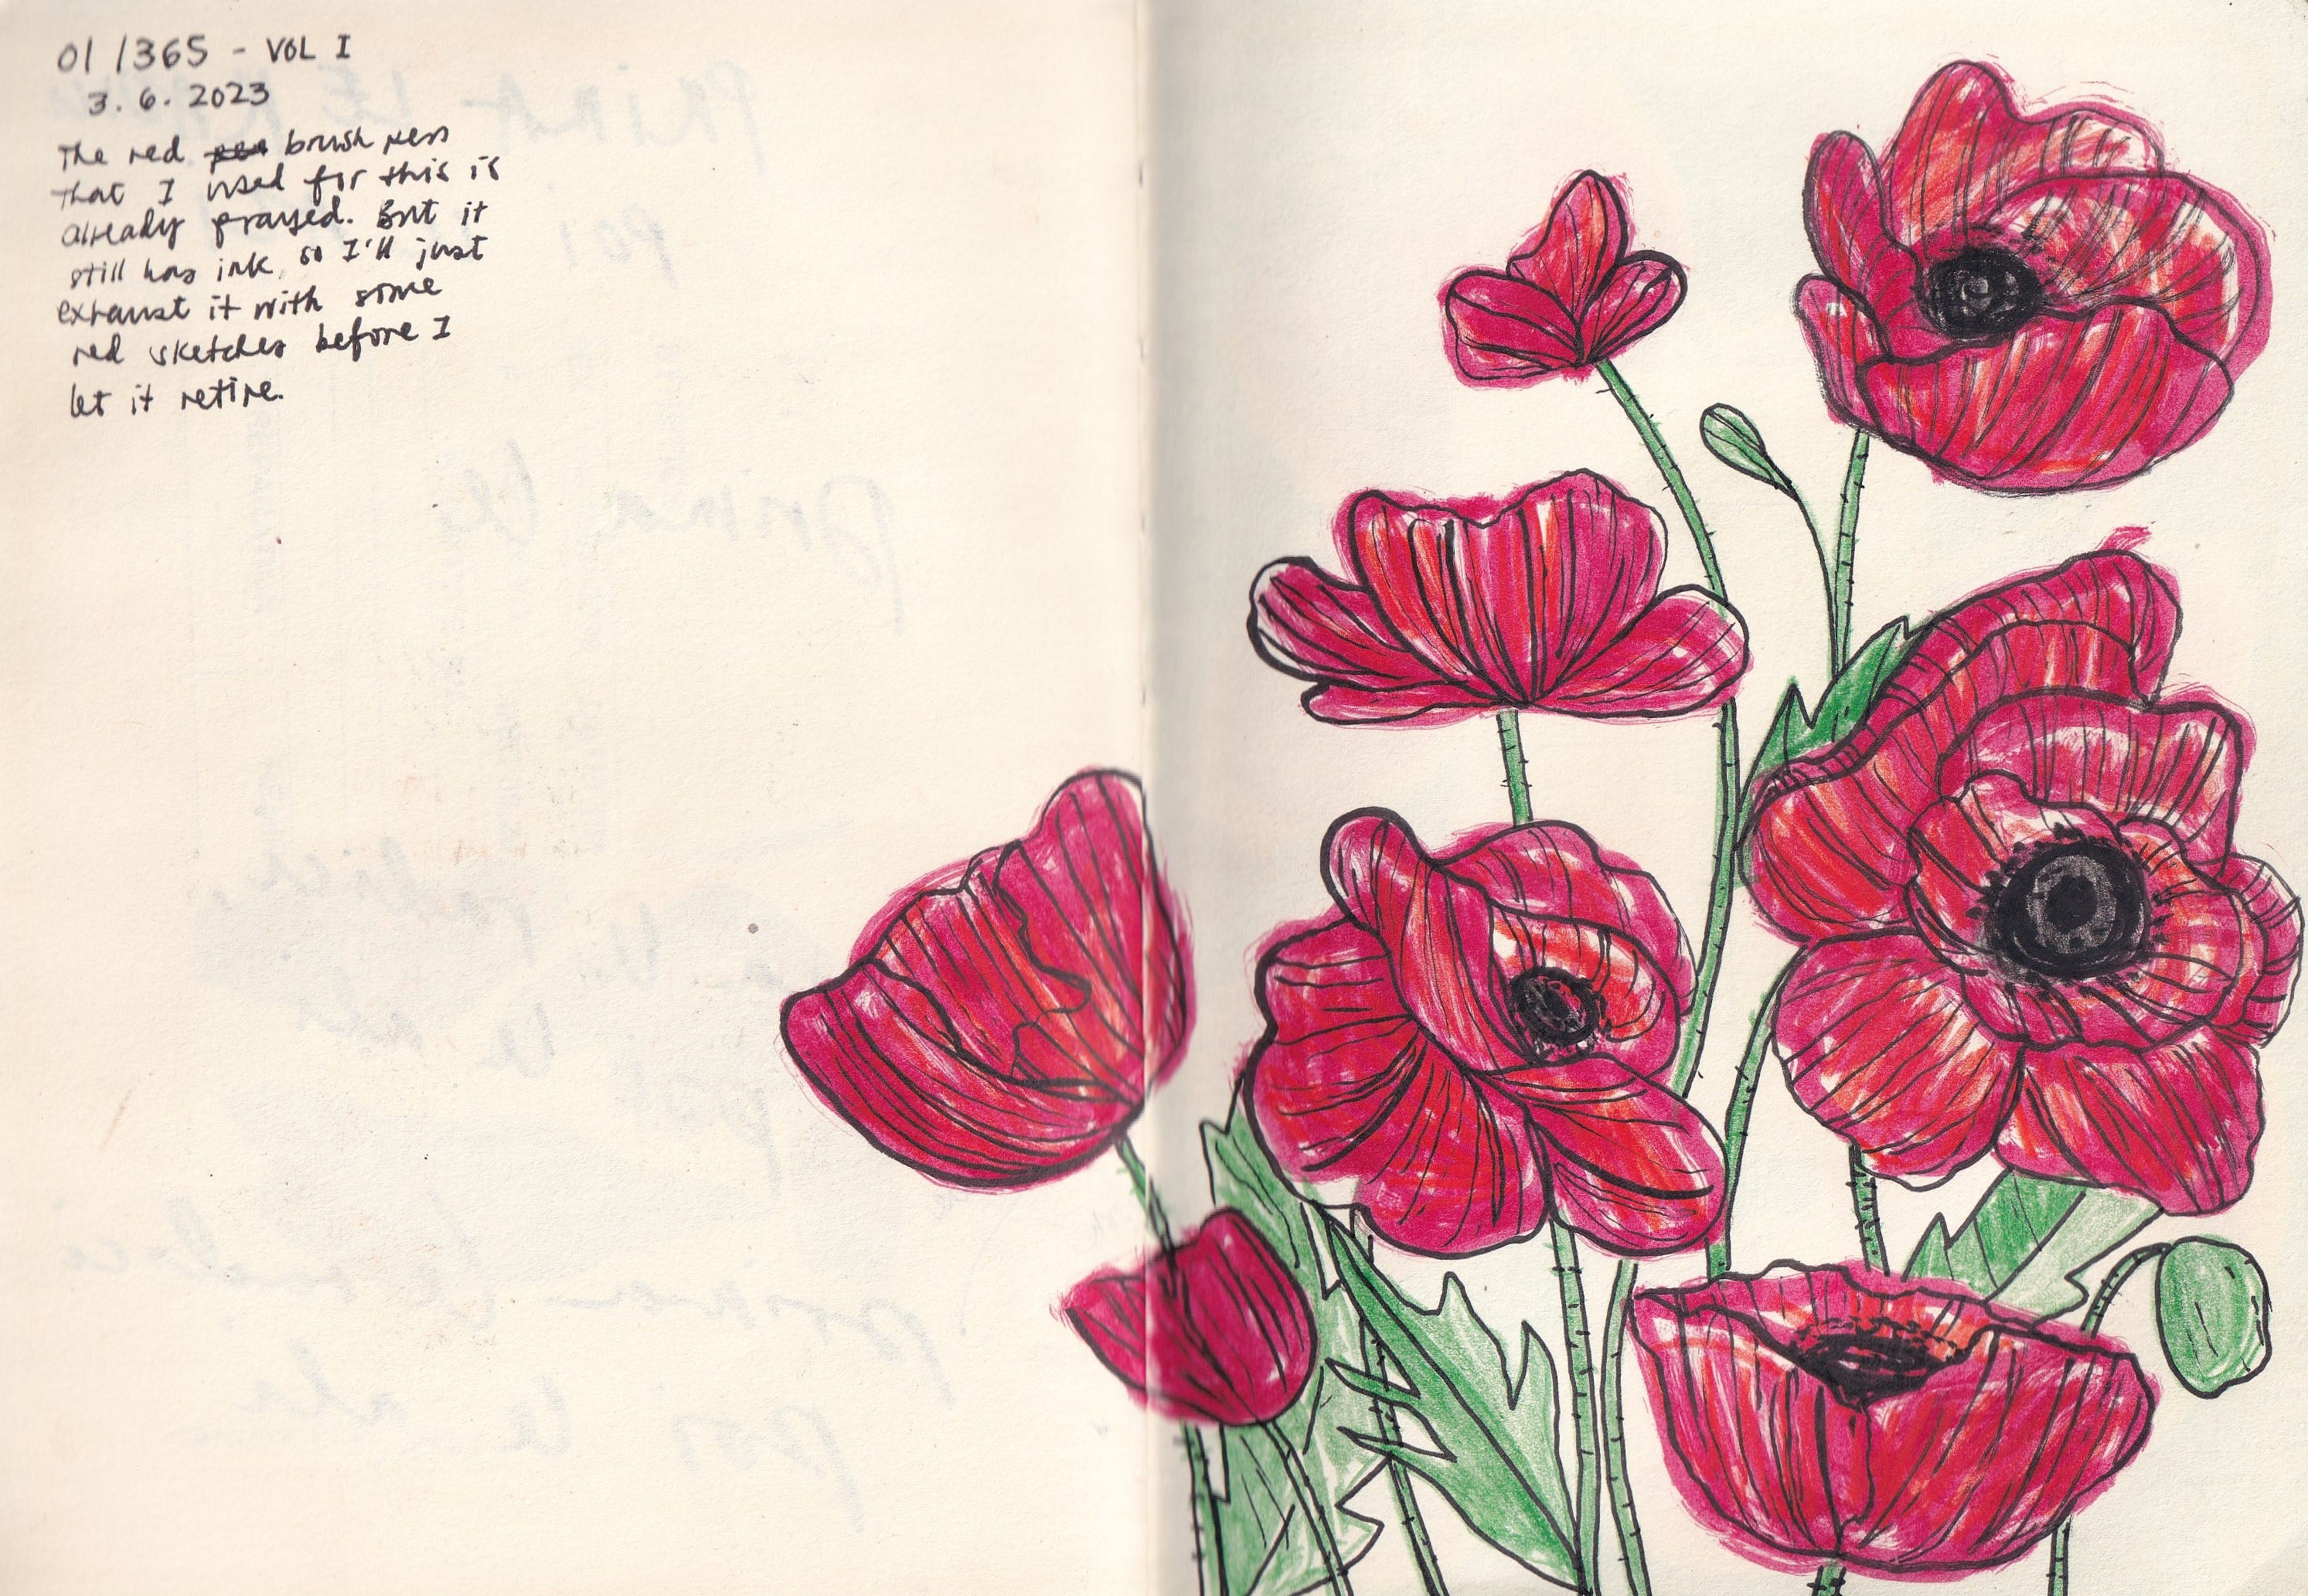 01/365 - VOL I
3.6.2023
The red pen brush pens
that I used for this is
already frayed. But it
still has ink, so I'll just
exhaust it with some
red sketches before I
let it retire.